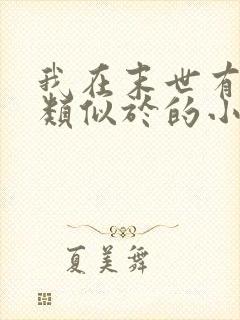 我在末世有
類似於的小
夏美舞